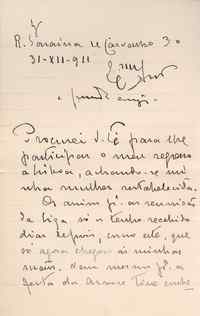 R. Saraiva de Carvalho 3
31-XII-911
Procurei V. Ex para lhe
participar o meu regresso
a Lisboa, achando-se mi
nha mulher restabelecida.
Os anim já as reuniões
da Liga só o tenho recebido
dias depois, como este, que
só agora chegou ás minhas
mãos. Nem mesmo já a
festa da Arvore tive